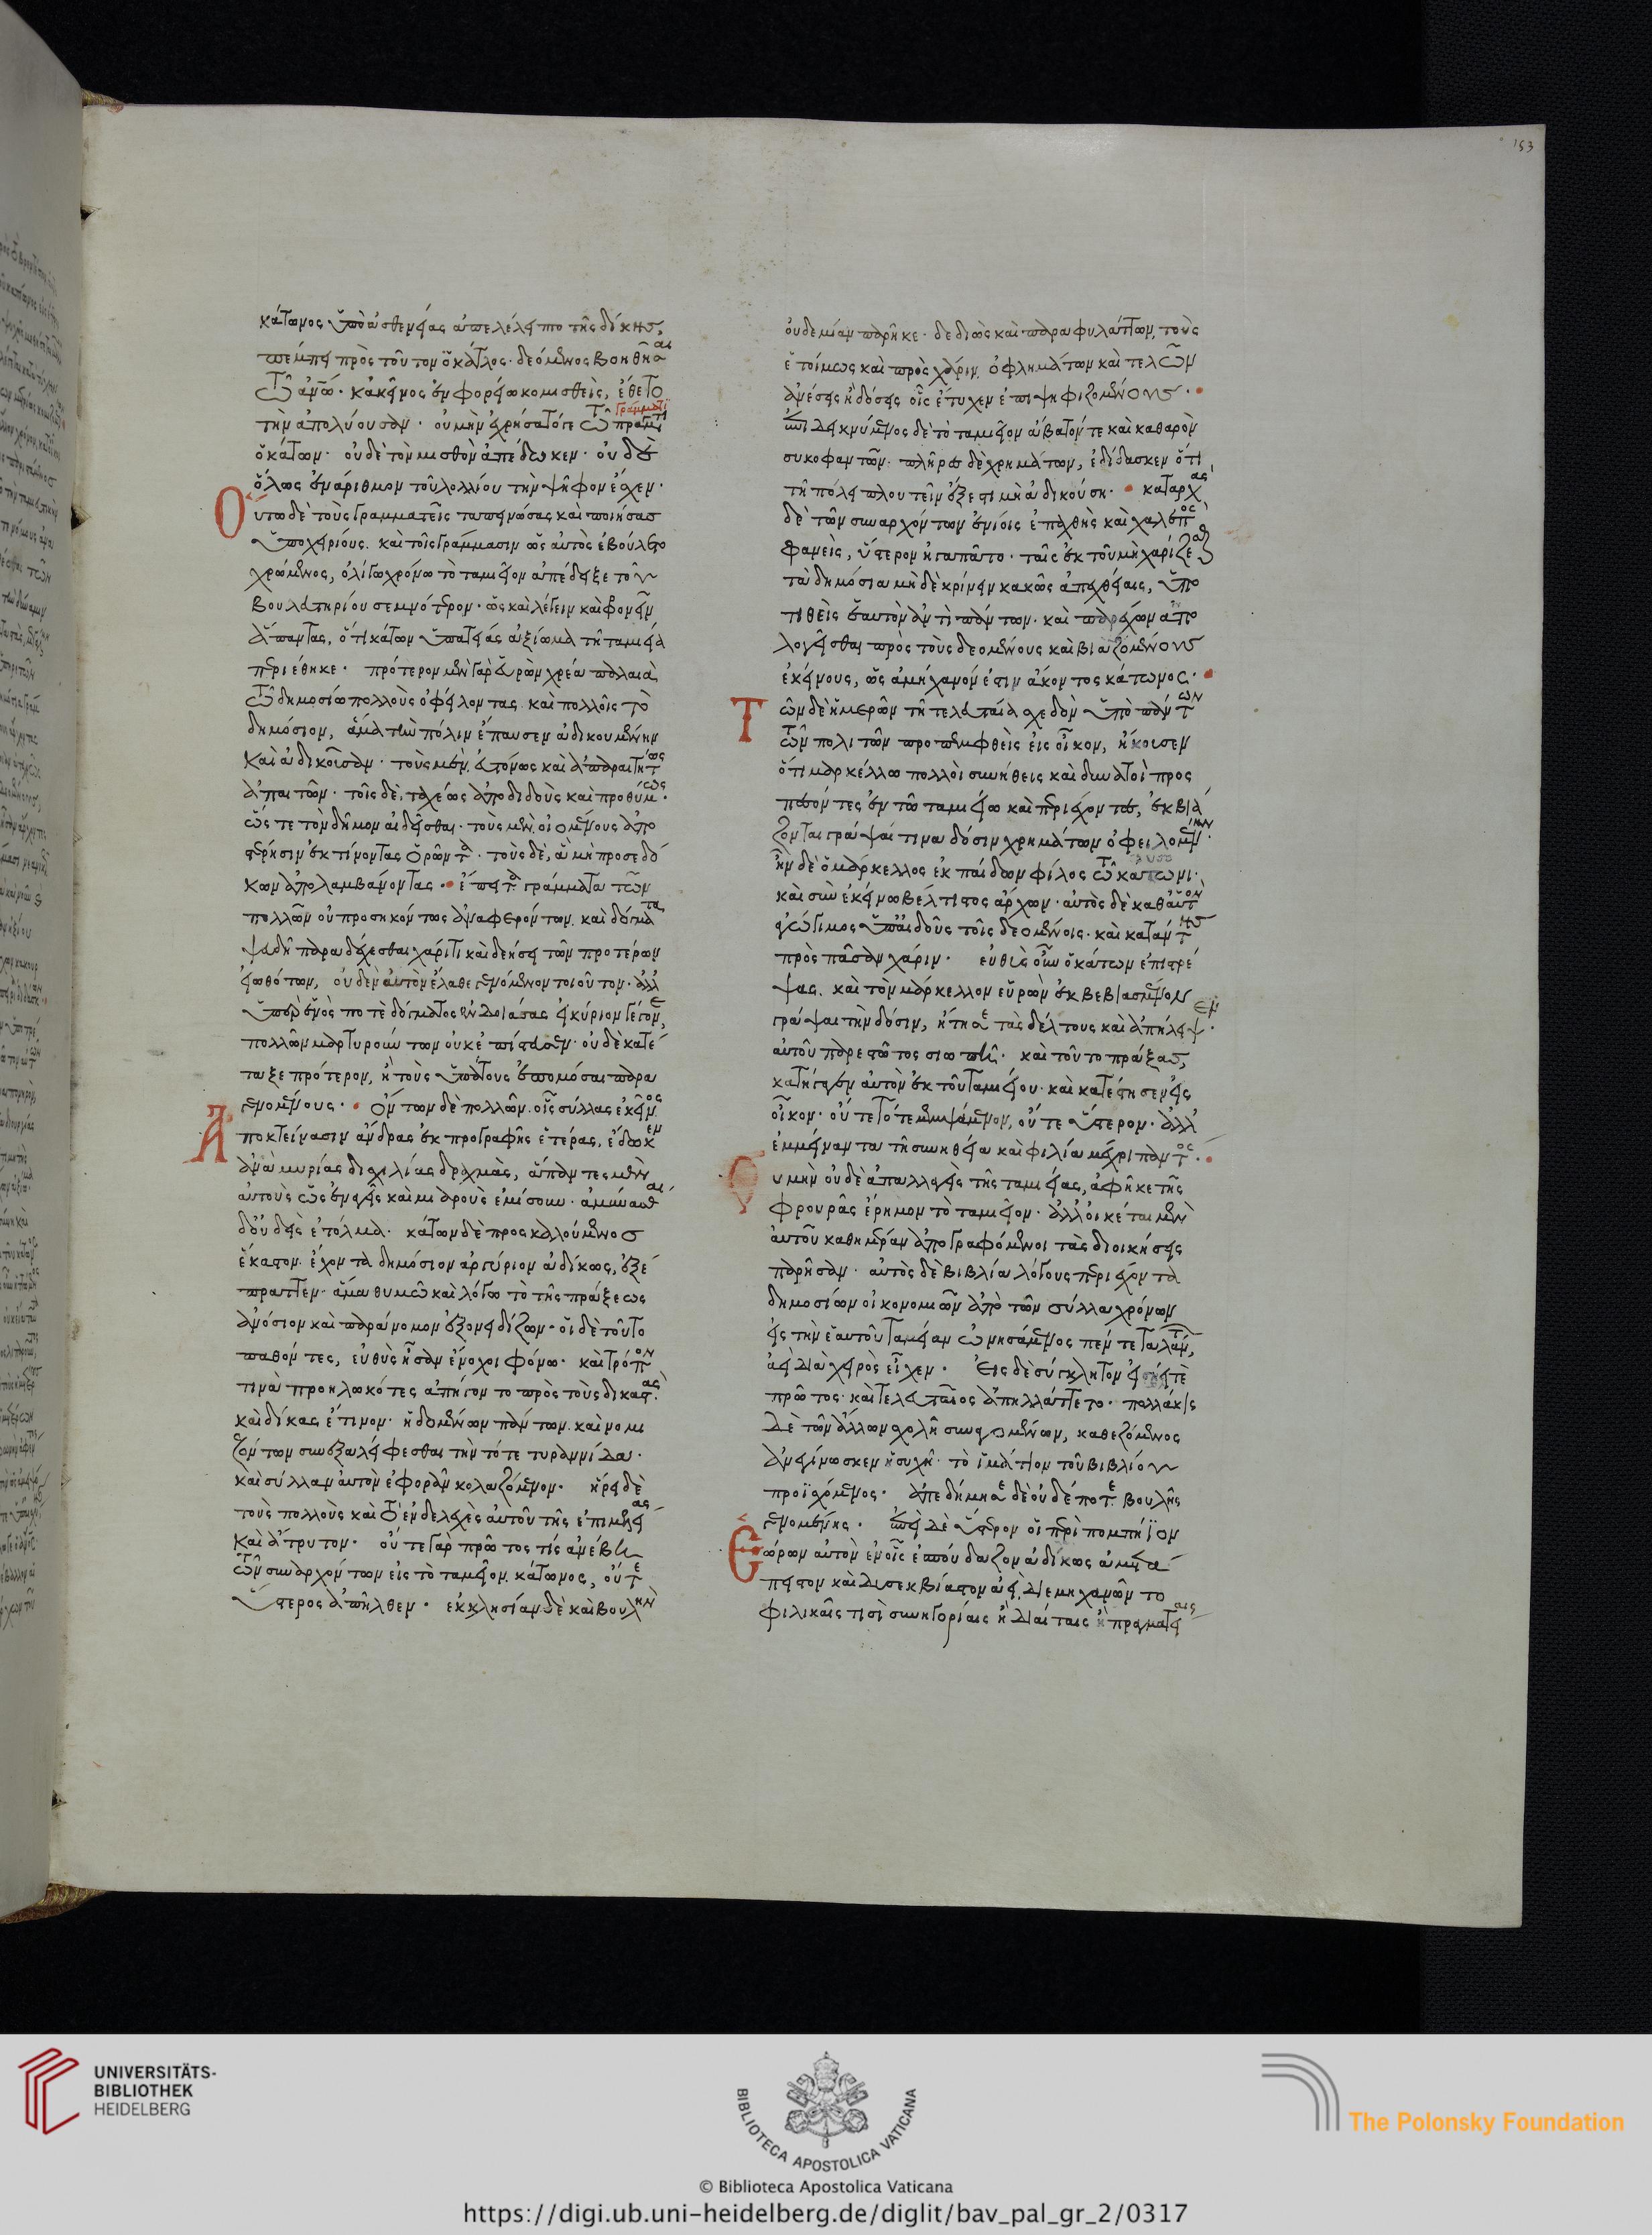 κάτωνος ὑπὸ ἀσθενείας ἀπελέλειπτο τῆς δίκης,
πέμπει πρὸς τοῦτον ὁ κάτλος· δεόμενος βοηθῆσαι
τῶ ἀνῶ· κἀκεῖνος ἐν φορείω κομισθεὶς, ἔθετο
τὴν ἀπολύουσαν· οὐ μὴν ἐχρήσατό γε τῶ πράγματι
ὁ κάτων· οὐδὲ τὸν μισθὸν ἀπέδωκεν· οὐδὲ
ὅλως ἐναρίθμιον τοῦ λολλίου τὴν ψῆφον ἔσχεν·
Οὕτω δὲ τοὺς γραμματεῖς ταπεινώσας καὶ ποιήσας
ὑποχειρίους. καὶ τοῖς γράμμασιν ὡς αὐτὸς ἐβούλετο
χρώμενος, ὀλίγω χρόνω τὸ ταμιεῖον ἀπέδειξε τοῦ
βουλευτηρίου σεμνότερον· ὡς καὶ λέγειν καὶ φρονεῖν
ἅπαντας, ὅτι κάτων ὑπατείας ἀξίωμα τῆ ταμιεία
περιέθηκε· πρότερον μὲν γὰρ εὑρὼν χρέα παλαιὰ
τῶ δημοσίω πολλοὺς ὀφείλοντας. καὶ πολλοῖς τὸ
δημόσιον, ἅμα τὴν πόλιν ἔπαυσεν ἀδικουμένην
καὶ ἀδικοῦσαν· τοὺς μὲν, εὐτόνως καὶ ἀπαραιτήτως
ἀπαιτῶν· τοῖς δὲ, ταχέως ἀποδιδοὺς καὶ προθύμως·
ὥστε τὸν δῆμον αἰδεῖσθαι· τοὺς μὲν, οἰομένους ἀπο
στερήσειν ἐκτίνοντας ὁρῶντα· τοὺς δὲ, ἃ μὴ προσεδό
κων ἀπολαμβάνοντας· ἔπειτα γράμματα τῶν
πολλῶν οὐ προσηκόντως ἀναφερόντων. καὶ δόγματα
ψευδῆ παραδέχεσθαι χάριτι καὶ δεήσει τῶν προτέρων
εἰωθότων, οὐδὲν αὐτὸν ἔλαθε γενόμενον τοιοῦτον· ἀλλ
ὑπὲρ ἑνὸς ποτὲ δόγματος ἐνδοιάσας εἰ κύριον γέγονε,
πολλῶν μαρτυρούντων οὐκ ἐπίστευσεν· οὐδὲ κατέ
ταξε πρότερον, ἢ τοὺς ὑπάτους ἐπομόσαι παρα
γενομένους· Ὄντων δὲ πολλῶν. οἷς σύλλας ἐκεῖνος
Ἀποκτείνασιν ἄνδρας ἐκ προγραφῆς ἑτέρας, ἔδωκεν
ἀνὰ μυρίας δισχιλίας δραχμὰς, ἅπαντες μὲν
αὐτοὺς ὡς ἐναγεῖς καὶ μιαροὺς ἐμίσουν· ἀμύνασθαι
δ οὐδεὶς ἐτόλμα· κάτων δὲ προσκαλούμενος
ἕκαστον. ἔχοντα δημόσιον ἀργύριον ἀδίκως, ἐξέ
πραττεν· ἅμα θυμῶ καὶ λόγω τὸ τῆς πράξεως
ἀνόσιον καὶ παράνομον ἐξονειδίζων· οἱ δὲ τοῦτο
παθόντες, εὐθὺς ἦσαν ἔνοχοι φόνω· καὶ τρόπον
τινὰ προηλωκότες ἀπήγοντο πρὸς τοὺς δικαστάς·
καὶ δίκας ἔτινον· ἡδομένων πάντων. καὶ νομι
ζόντων συνεξαλείφεσθαι τὴν τότε τυραννίδα·
καὶ σύλλαν αὐτὸν ἐφορᾶν κολαζόμενον· ἥρει δὲ
τοὺς πολλοὺς καὶ τὸ ἐνδελεχὲς αὐτοῦ τῆς ἐπιμελείας
καὶ ἄτρυτον· οὔτε γὰρ πρῶτός τις ἀνέβη
τῶν συναρχόντων εἰς τὸ ταμιεῖον. κάτωνος, οὔτε
ὕστερος ἀπῆλθεν· ἐκκλησίαν δὲ καὶ βουλὴν
153
οὐδεμίαν παρῆκε· δεδιὼς καὶ παραφυλάττων, τοὺς
ἑτοίμως καὶ πρὸς χάριν. ὀφλημάτων καὶ τελῶν
ἀνέσεις ἢ δόσεις οἷς ἔτυχεν ἐπιψηφιζομένους·
ἐπιδεικνύμενος δὲ τὸ ταμιεῖον ἄβατόν τε καὶ καθαρὸν
συκοφαντῶν. πλῆρες δὲ χρημάτων, ἐδίδασκεν ὅτι
τῆ πόλει πλουτεῖν ἔξεστι μὴ ἀδικούση· καταρχὰς
δὲ τῶν συναρχόντων ἐνίοις ἐπαχθὴς καὶ χαλεπὸς
φανεὶς, ὕστερον ἠγαπᾶτο· ταῖς ἐκ τοῦ μὴ χαρίζεσθαι
τὰ δημόσια μὴ δὲ κρίνειν κακῶς ἀπεχθείαις, ὑπο
τιθεὶς ἑαυτὸν ἀντὶ πάντων. καὶ παρέχων ἀπο
λογεῖσθαι πρὸς τοὺς δεομένους καὶ βιαζομένους
ἐκείνους, ὡς ἀμήχανόν ἐστιν ἄκοντος κάτωνος·
Τῶν δὲ ἡμερῶν τῆ τελευταία σχεδὸν ὑπὸ πάντων
τῶν πολιτῶν προπεμφθεὶς εἰς οἶκον, ἤκουσεν
ὅτι μαρκέλλω πολλοὶ συνήθεις καὶ δυνατοὶ προς
πεσόντες ἐν τῶ ταμιείω καὶ περιέχοντες, ἐκβιά
ζονται γράψαι τινα δόσιν χρημάτων ὀφειλομένων·
ἦν δὲ ὁ μάρκελλος ἐκ παίδων φίλος τῶ κάτωνι·
καὶ σὺν ἐκείνω βέλτιστος ἄρχων· αὐτὸς δὲ καθ αὑτὸν
ἀγώγιμος ὑπ αἰδοῦς τοῖς δεομένοις· καὶ κατάντης
πρὸς πᾶσαν χάριν· εὐθὺς οὖν ὁ κάτων ἐπιστρέ
ψας. καὶ τὸν μάρκελλον εὑρὼν ἐκβεβιασμένον
γράψαι τὴν δόσιν, ἤτησε τὰς δέλτους καὶ ἀπήλειψεν·
αὐτοῦ παρεστῶτος σιωπῆ· καὶ τοῦτο πράξας,
κατήγαγεν αὐτὸν ἐκ τοῦ ταμιείου· καὶ κατέστησεν εἰς
οἶκον· οὔτε τότε μεμψάμενον, οὔτε ὕστερον· ἀλλ
ἐμμείναντα τῆ συνηθεία καὶ φιλία μέχρι παντός·
Οὐ μὴν οὐδὲ ἀπαλλαγεὶς τῆς ταμιείας, ἀφῆκε τῆς
φρουρᾶς ἔρημον τὸ ταμιεῖον· ἀλλ οἰκέται μὲν
αὐτοῦ καθημέραν ἀπογραφόμενοι τὰς διοικήσεις
παρῆσαν· αὐτὸς δὲ βιβλία λόγους περιέχοντα
δημοσίων οἰκονομιῶν ἀπὸ τῶν σύλλα χρόνων
εἰς τὴν ἑαυτοῦ ταμιείαν ὠνησάμενος πέντε ταλάντων,
ἀεὶ διὰ χειρὸς εἶχεν· Εἰς δὲ σύγκλητον εἰσήει τε
πρῶτος· καὶ τελευταῖος ἀπηλλάττετο· πολλάκις
δὲ τῶν ἄλλων σχολῆ συναγομένων, καθεζόμενος
ἀνεγίνωσκεν ἡσυχῆ· τὸ ἱμάτιον τοῦ βιβλίου
προϊσχόμενος· ἀπεδήμησε δὲ οὐδέποτε βουλῆς
γενομένης· ἐπεὶ δὲ ὕστερον οἱ περὶ πομπήϊον
Ἑώρων αὐτὸν ἐν οἷς ἐσπούδαζον ἀδίκως ἀμετά
πειστον καὶ δυσεκβίαστον ἀεὶ, διεμηχανῶντο
φιλικαῖς τισὶ συνηγορίαις ἢ διαίταις ἢ πραγματείαις
UNIVERSITÄTS-
BIBLIOTHEK
HEIDELBERG
BIBLIOTECA APOSTOLICA VATICANA
The Polonsky Foundation
© Biblioteca Apostolica Vaticana
https://digi.ub.uni-heidelberg.de/diglit/bav_pal_gr_2/0317